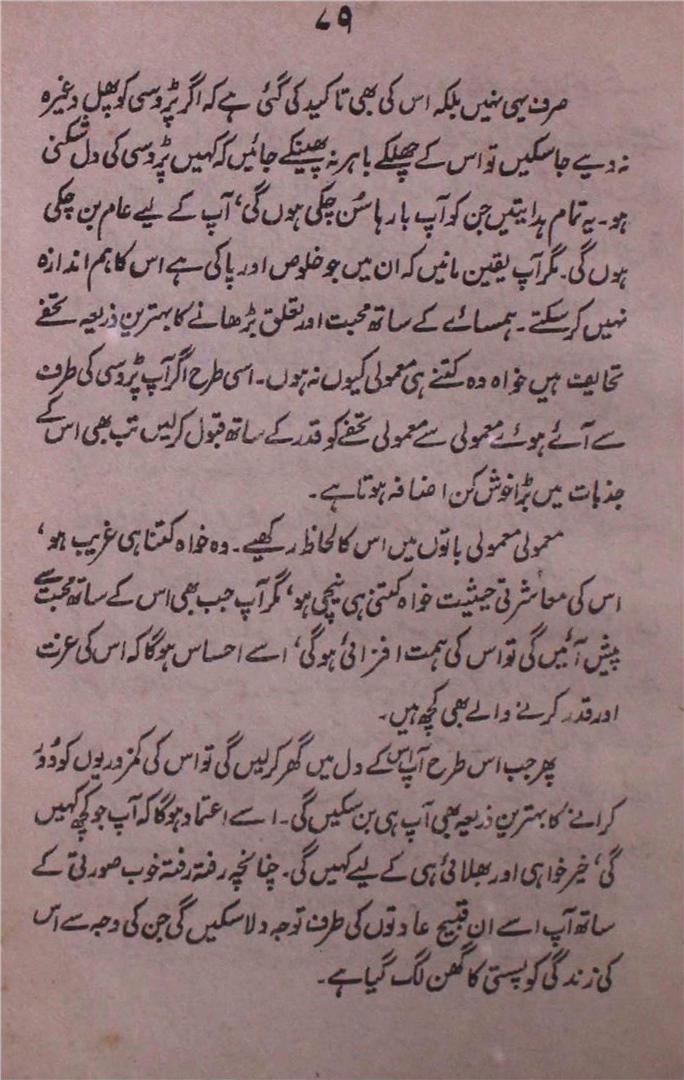 ۷۹
صرف یہی نہیں بلکہ اس کی بھی تاکید کی گئی ہے کہ اگر پڑوسی کو پھل وغیرہ
نہ دیے جاسکیں تو اس کے چھلکے باہر نہ پھینکے جائیں کہ کہیں پڑوسی کی دل شکنی
ہو۔ یہ تمام ہدایتیں جن کو آپ بارہا سُن چکی ہوں گی، آپ کے لیے عام بن چکی
ہوں گی۔ مگر آپ یقین مانیں کہ ان میں جو خلوص اور پاکی ہے اس کا ہم اندازہ
نہیں کرسکتے۔ ہمسائے کے ساتھ محبت اور تعلق بڑھانے کا بہترین ذریعہ تحفے
تحایف ہیں خواہ وہ کتنے ہی معمولی کیوں نہ ہوں۔ اسی طرح اگر آپ پڑوسی کی طرف
سے آئے ہوئے معمولی سے معمولی تحفے کو قدر کے ساتھ قبول کرلیں تب بھی اس کے
جذبات میں بڑا خوش کن اضافہ ہوتا ہے۔
معمولی معمولی باتوں میں اس کا لحاظ رکھیے۔ وہ خواہ کتنا ہی غریب ہو،
اس کی معاشرتی حیثیت خواہ کتنی ہی نیچی ہو، مگر آپ جب بھی اس کے ساتھ محبت سے
پیش آئیں گی تو اس کی ہمت افزائی ہوگی، اسے احساس ہوگا کہ اس کی عزت
اور قدر کرنے والے بھی کچھ ہیں۔
پھر جب اس طرح آپ اس کے دل میں گھر کرلیں گی تو اس کی کمزوریوں کو دُور
کرانے کا بہترین ذریعہ بھی آپ ہی بن سکیں گی۔ اسے اعتماد ہوگا کہ آپ جو کچھ کہیں
گی، خیر خواہی اور بھلائی ہی کے لیے کہیں گی۔ چنانچہ رفتہ رفتہ خوب صورتی کے
ساتھ آپ اسے ان قبیح عادتوں کی طرف توجہ دلاسکیں گی جن کی وجہ سے اس
کی زندگی کو پستی کا گھن لگ گیا ہے۔